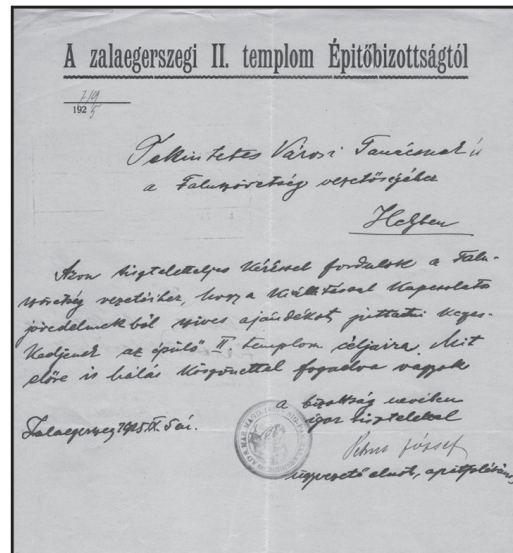 A zalaegerszegi II. templom Építőbizottságtól
7/19
1925
Tekintetes Városi Tanácsnak és
a Faluszövetség vezetőségéhez
Helyben
Azon tiszteletteljes kéréssel fordulok a Falu-
szövetség vezetőihez, hogy a kiállítással kapcsolatos
jövedelmekből szíves ajándékot juttatni kegyes-
kedjenek az épülő II. templom céljaira. Mit
előre is hálás köszönettel fogadva vagyok
a bizottság nevében
Zalaegerszeg 1925.IX.5-én.
igaz tisztelettel
Pehm József
ügyvezető elnök, apátplébános